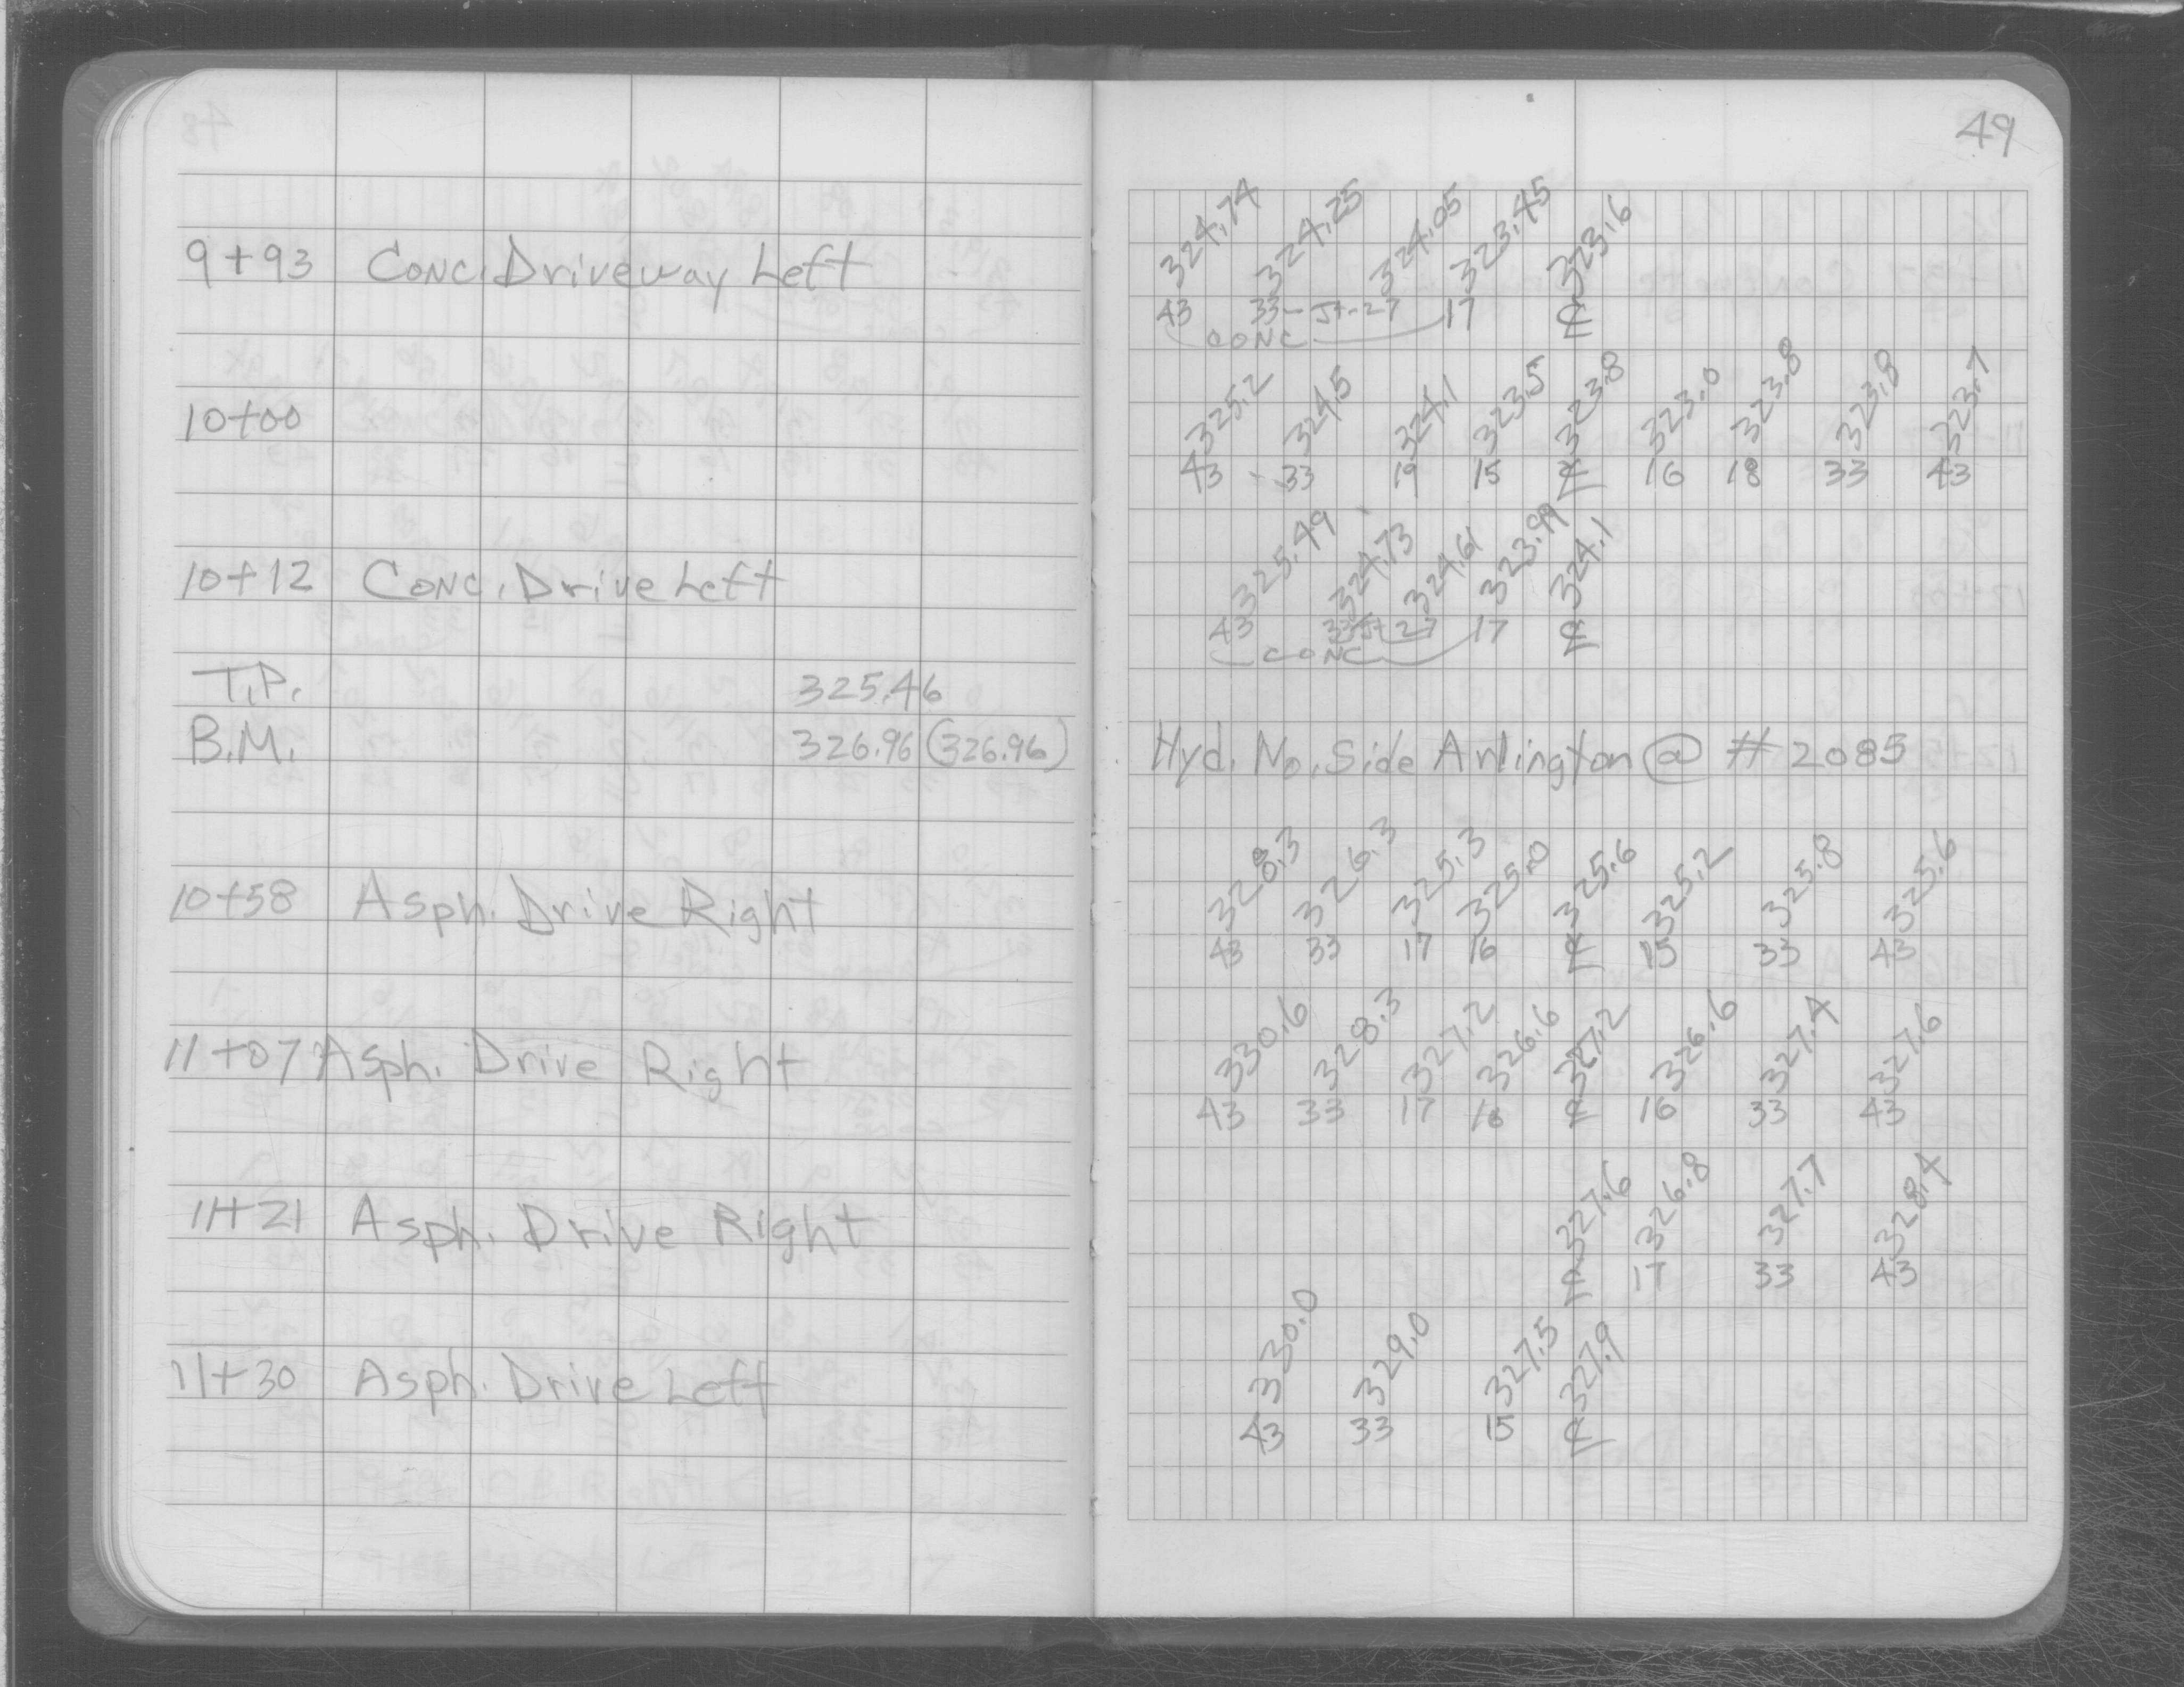 49
9+93 Conc. Driveway Left
324.74 324.25 324.05 323.45 323.6
43 33-Jt.-27 17 ℄
CONC
10+00
325.2 324.5 324.1 323.5 323.8 323.0 323.8 323.8 323.7
43 33 19 15 ℄ 16 18 33 43
10+12 Conc. Drive Left
325.49 324.73 324.61 323.99 324.1
43 33 Jt 27 17 ℄
CONC
T.P. 325.46
B.M. 326.96 (326.96) Hyd. No. Side Arlington @ # 2085
10+58 Asph. Drive Right
328.3 326.3 325.3 325.0 325.6 325.2 325.8 325.6
43 33 17 16 ℄ 15 33 43
11+07 Asph. Drive Right
330.6 328.3 327.2 326.6 327.2 326.6 327.4 327.6
43 33 17 16 ℄ 16 33 43
11+21 Asph. Drive Right
327.6 326.8 327.7 328.4
℄ 17 33 43
11+30 Asph. Drive Left
330.0 329.0 327.5 327.9
43 33 15 ℄